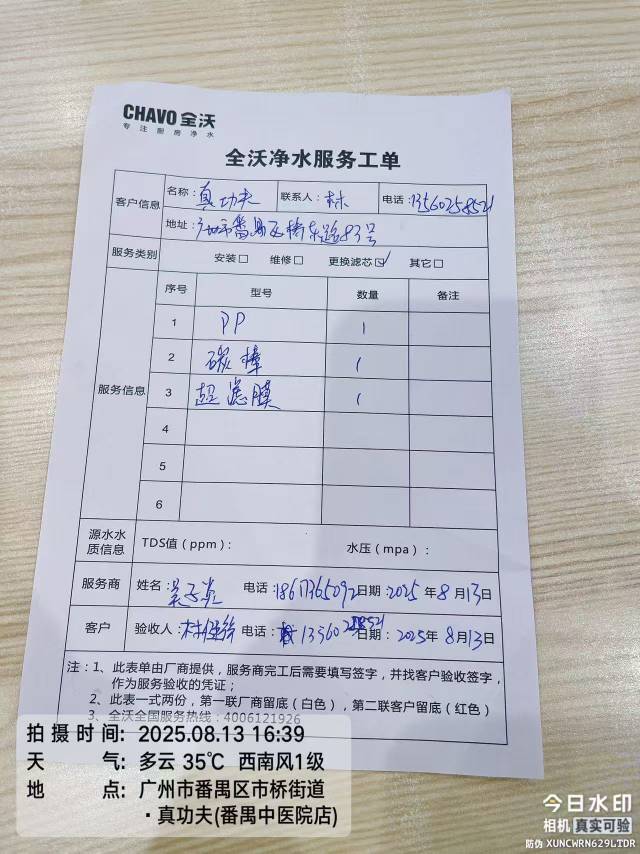 CHAVO 全沃
专注厨房净水
全沃净水服务工单
客户信息 名称：真功夫 联系人：林 电话：13560258521
地址：广州市番禺区桥东路83号
服务类别 安装□ 维修□ 更换滤芯☑ 其它□
服务信息 序号 型号 数量 备注
1 PP 1
2 碳棒 1
3 超滤膜 1
4
5
6
源水水质信息 TDS值（ppm）： 水压（mpa）：
服务商 姓名： 电话：18617365092 日期：2025年8月13日
客户 验收人： 电话：13560258521 日期：2025年8月13日
注：1、此表单由厂商提供，服务商完工后需要填写签字，并找客户验收签字，
作为服务验收的凭证；
2、此表一式两份，第一联厂商留底（白色），第二联客户留底（红色）
3、全沃全国服务热线：4006121926
拍摄时间：2025.08.13 16:39
天气：多云 35℃ 西南风1级
地点：广州市番禺区市桥街道
·真功夫(番禺中医院店)
今日水印
相机 真实可验
防伪 XUNCWRN629LTDR